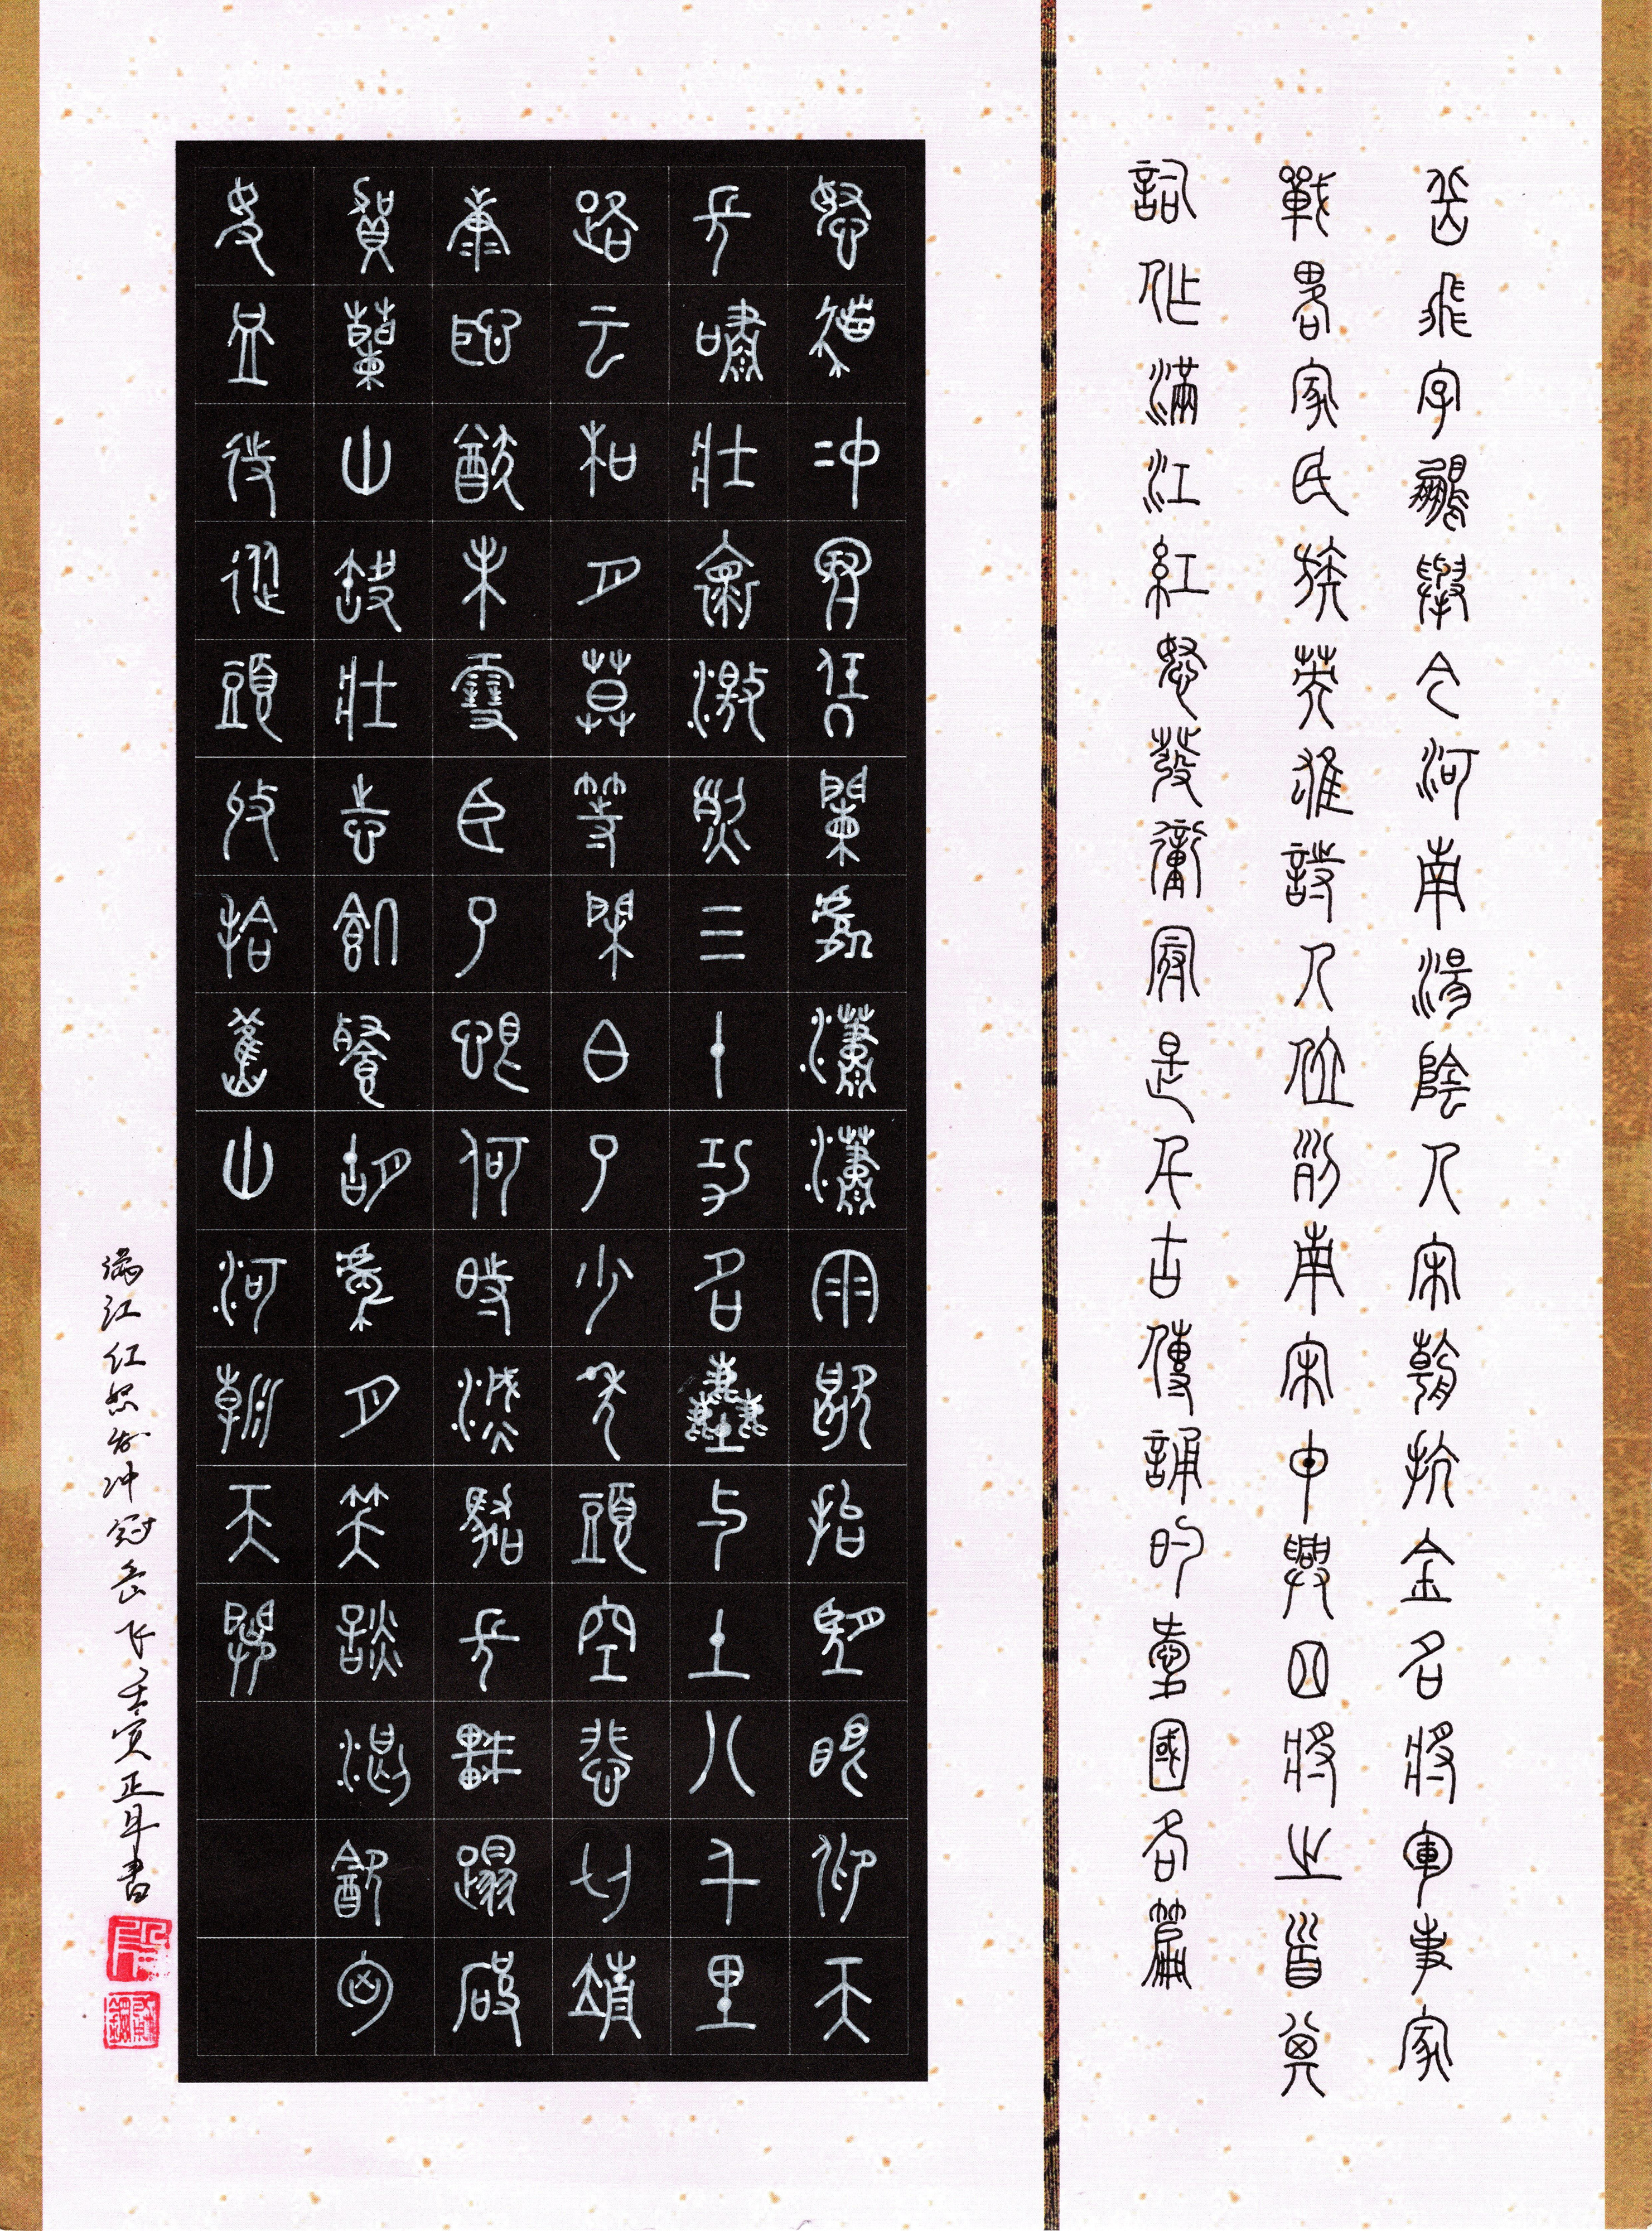 岳飛字鵬舉今河南湯陰人宋朝抗金名將軍事家
戰略家民族英雄詩人位列南宋中興四將之首其
詞作滿江紅怒髮衝冠是千古傳誦的愛國名篇
怒髮冲冠凭闌處瀟瀟雨歇抬望眼仰天
長嘯壯懷激烈三十功名塵与土八千里
路云和月莫等閑白了少年頭空悲切靖
康恥猶未雪臣子恨何時滅駕長車踏破
賀蘭山缺壯志飢餐胡虜肉笑談渴飲匈
奴血待從頭收拾舊山河朝天闕
满江红怒发冲冠岳飞壬寅正月書